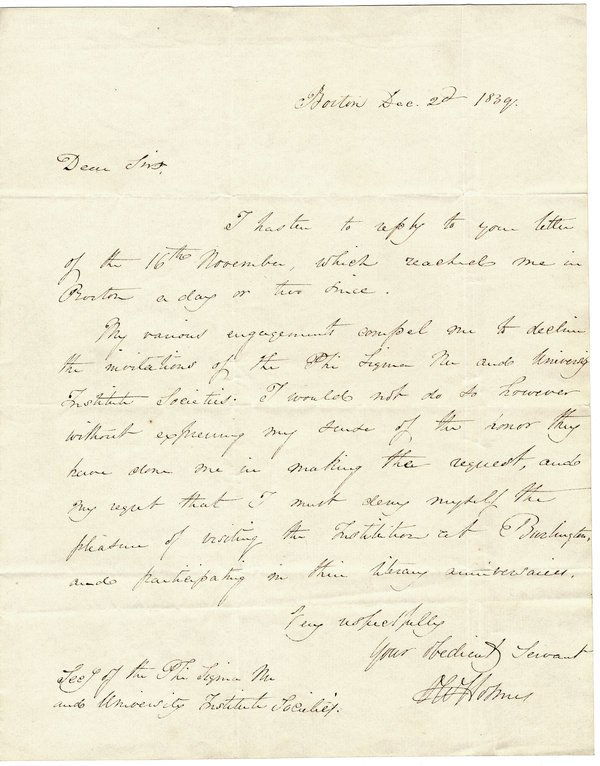 Boston Dec. 2d 1839.
Dear Sir,
I hasten to reply to your letter
of the 16th November, which reached me in
Boston a day or two since.
My various engagements compel me to decline
the invitations of the Phi Sigma Nu and University
Institute Societies. I would not do so however
without expressing my sense of the honor they
have done me in making the request, and
my regret that I must deny myself the
pleasure of visiting the Institution at Burlington,
and participating in their literary anniversaries.
Very respectfully
Your obedient Servant
O W Holmes
Secy of the Phi Sigma Nu
and University Institute Societies.